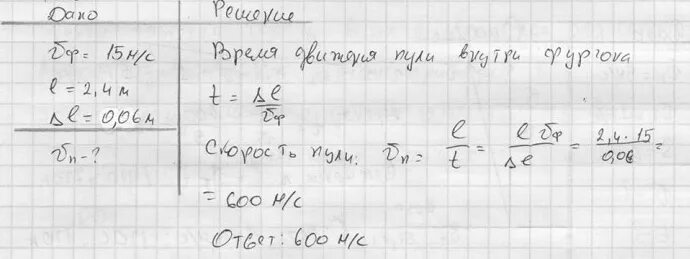 Дано
υф = 15 м/с
l = 2,4 м
Δl = 0,06 м
υп - ?
Решение
Время движения пули внутри фургона
t = Δl / υф
Скорость пули: υп = l / t = l υф / Δl = 2,4 · 15 / 0,06 =
= 600 м/с
Ответ: 600 м/с